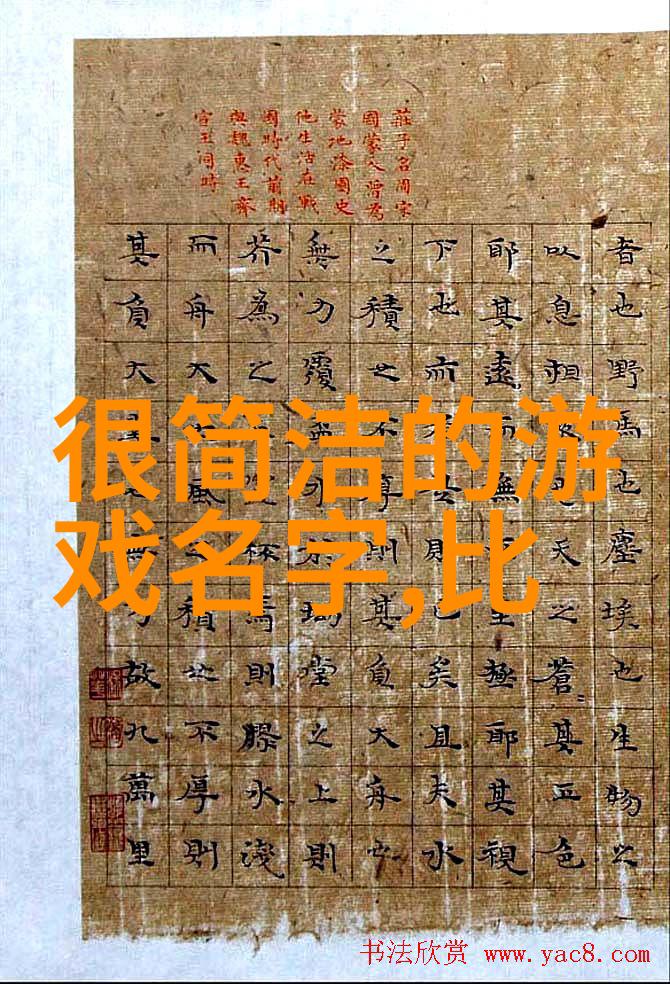 莊子名周宋
國蒙人曾為
蒙地漆園史
他生活在戰
國時代前期
與魏惠王齊
宣王同時
者也野馬也塵埃也生物之
以息相吹也天之蒼其正色
耶其遠而無至極耶其視
下也而則已矣且夫水
之積也不厚則其負大舟也
無力覆盃水於坳堂之上則
芥為之置杯焉則膠水淺
而舟大也風之積也不厚則
其負大翼也無力故九萬里
很简洁的游
戏名字,比
书法欣赏 www.yac8.com